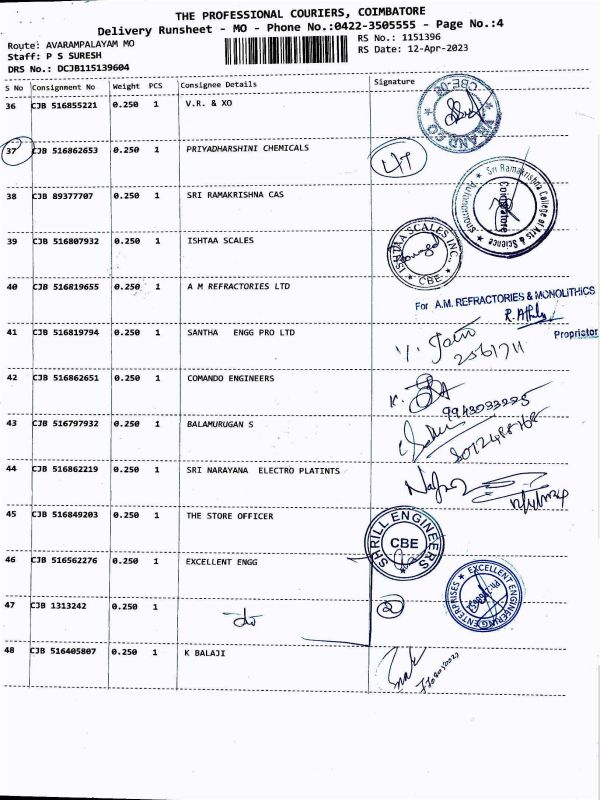 THE PROFESSIONAL COURIERS, COIMBATORE
Delivery Runsheet - MO - Phone No.:0422-3505555 - Page No.:4
Route: AVARAMPALAYAM MO
RS No.: 1151396
Staff: P S SURESH
RS Date: 12-Apr-2023
DRS No.: DCJB115139604
S No Consignment No Weight PCS Consignee Details Signature
36 CJB 516855221 0.250 1 V.R. & XO
37 CJB 516862653 0.250 1 PRIYADHARSHINI CHEMICALS
38 CJB 89377707 0.250 1 SRI RAMAKRISHNA CAS
Sri Ramakrishna College of Arts & Science
Coimbatore
39 CJB 516807932 0.250 1 ISHTAA SCALES
ISHTAA SCALES INC.,
CBE
40 CJB 516819655 0.250 1 A M REFRACTORIES LTD
For A.M. REFRACTORIES & MONOLITHICS
Proprietor
41 CJB 516819794 0.250 1 SANTHA ENGG PRO LTD
2561711
42 CJB 516862651 0.250 1 COMANDO ENGINEERS
9943033225
43 CJB 516797932 0.250 1 BALAMURUGAN S
44 CJB 516862219 0.250 1 SRI NARAYANA ELECTRO PLATINTS
45 CJB 516849203 0.250 1 THE STORE OFFICER
SHRILL ENGINEERS
CBE
46 CJB 516562276 0.250 1 EXCELLENT ENGG
EXCELLENT ENGINEERING ENTERPRISES
47 CJB 1313242 0.250 1 do 2
48 CJB 516405807 0.250 1 K BALAJI